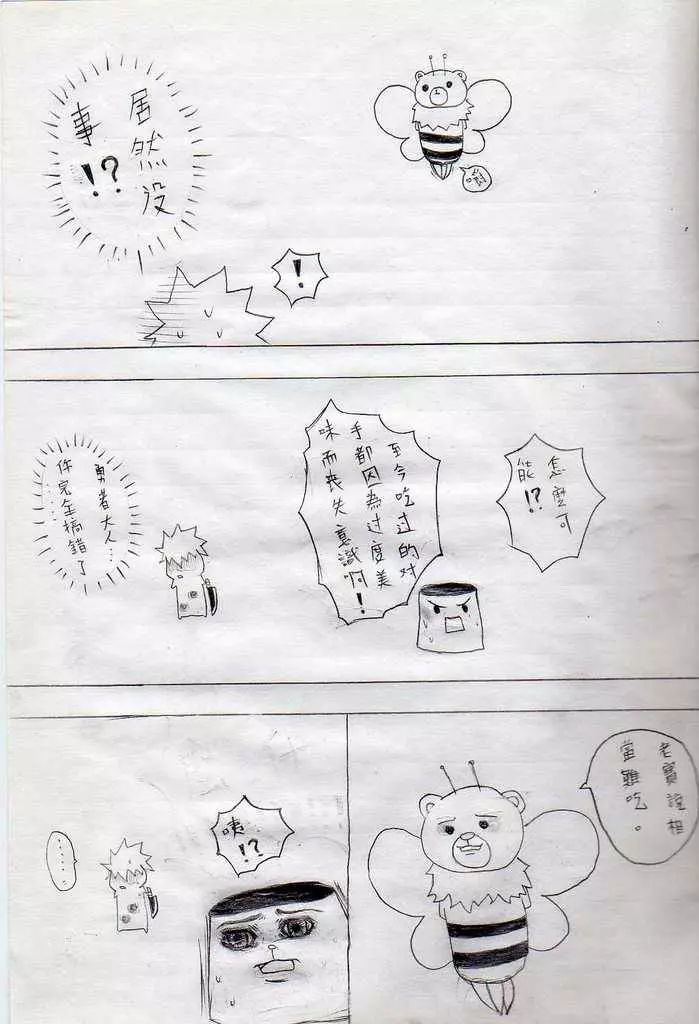 居然没
事!?
!
怎麼可
能!?
至今吃过的对
手都因為过度美
味而喪失意識啊!
勇者大人...
你完全搞錯了
老實說相
當難吃。
咦!?
......